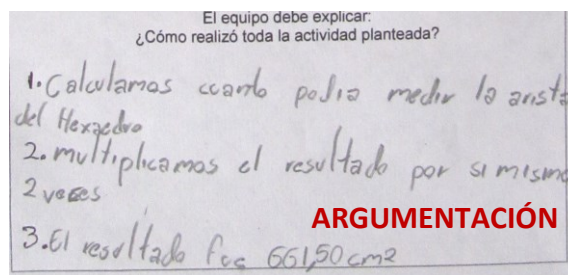 El equipo debe explicar:
¿Cómo realizó toda la actividad planteada?
1. Calculamos cuanto podia medir la arista
del Hexaedro
2. multiplicamos el resultado por si mismo
2 veces
ARGUMENTACIÓN
3. El resultado fue 661,50 cm2